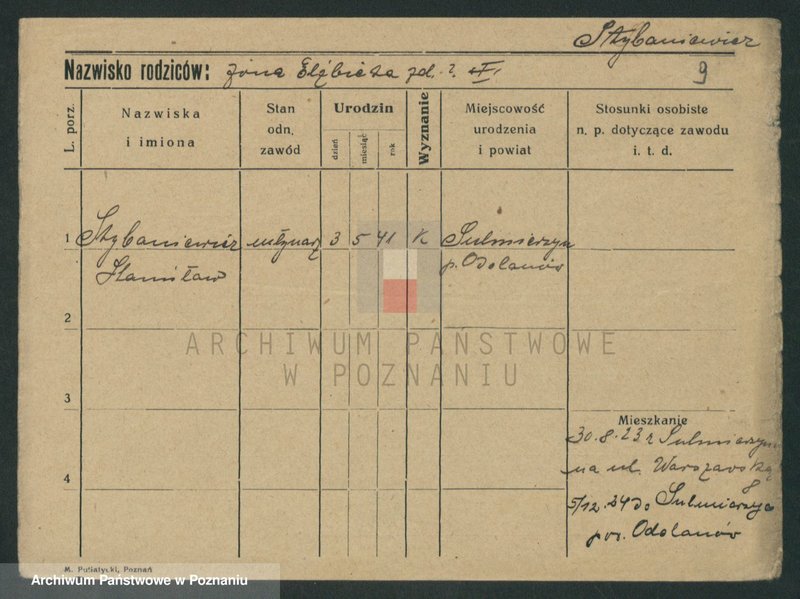 Stybaniewicz
Nazwisko rodziców: żona Elżbieta zd. ?
9
L. porz.
Nazwiska
i imiona
Stan
odn.
zawód
Urodzin
dzień
miesiąc
rok
Wyznanie
Miejscowość
urodzenia
i powiat
Stosunki osobiste
n. p. dotyczące zawodu
i. t. d.
1 Stybaniewicz młynarz 3 5 41 K Sulmierzyce
Stanisław p. Odolanów
2
3
4
Mieszkanie
30.8.23 z Sulmierzyc
na ul. Warszawską
8
5/12.24 do Sulmierzyc
pow. Odolanów
ARCHIWUM PAŃSTWOWE
W POZNANIU
M. Putiatycki, Poznań
Archiwum Państwowe w Poznaniu